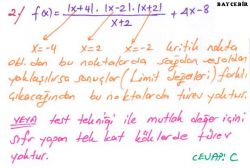 BAYCEBİR
2/ f(x) = |x+4| . |x-2| . |x+2| / x+2 + 4x-8
x=-4 x=2 x=-2 kritik nokta
olduğundan bu noktalarda sağdan ve soldan
yaklaşılırsa sonuçlar (Limit değerleri) farklı
çıkacağından bu noktalarda türev yoktur.
VEYA test tekniği ile mutlak değer için
sıfır yapan tek kat köklerde türev
yoktur.
CEVAP: C